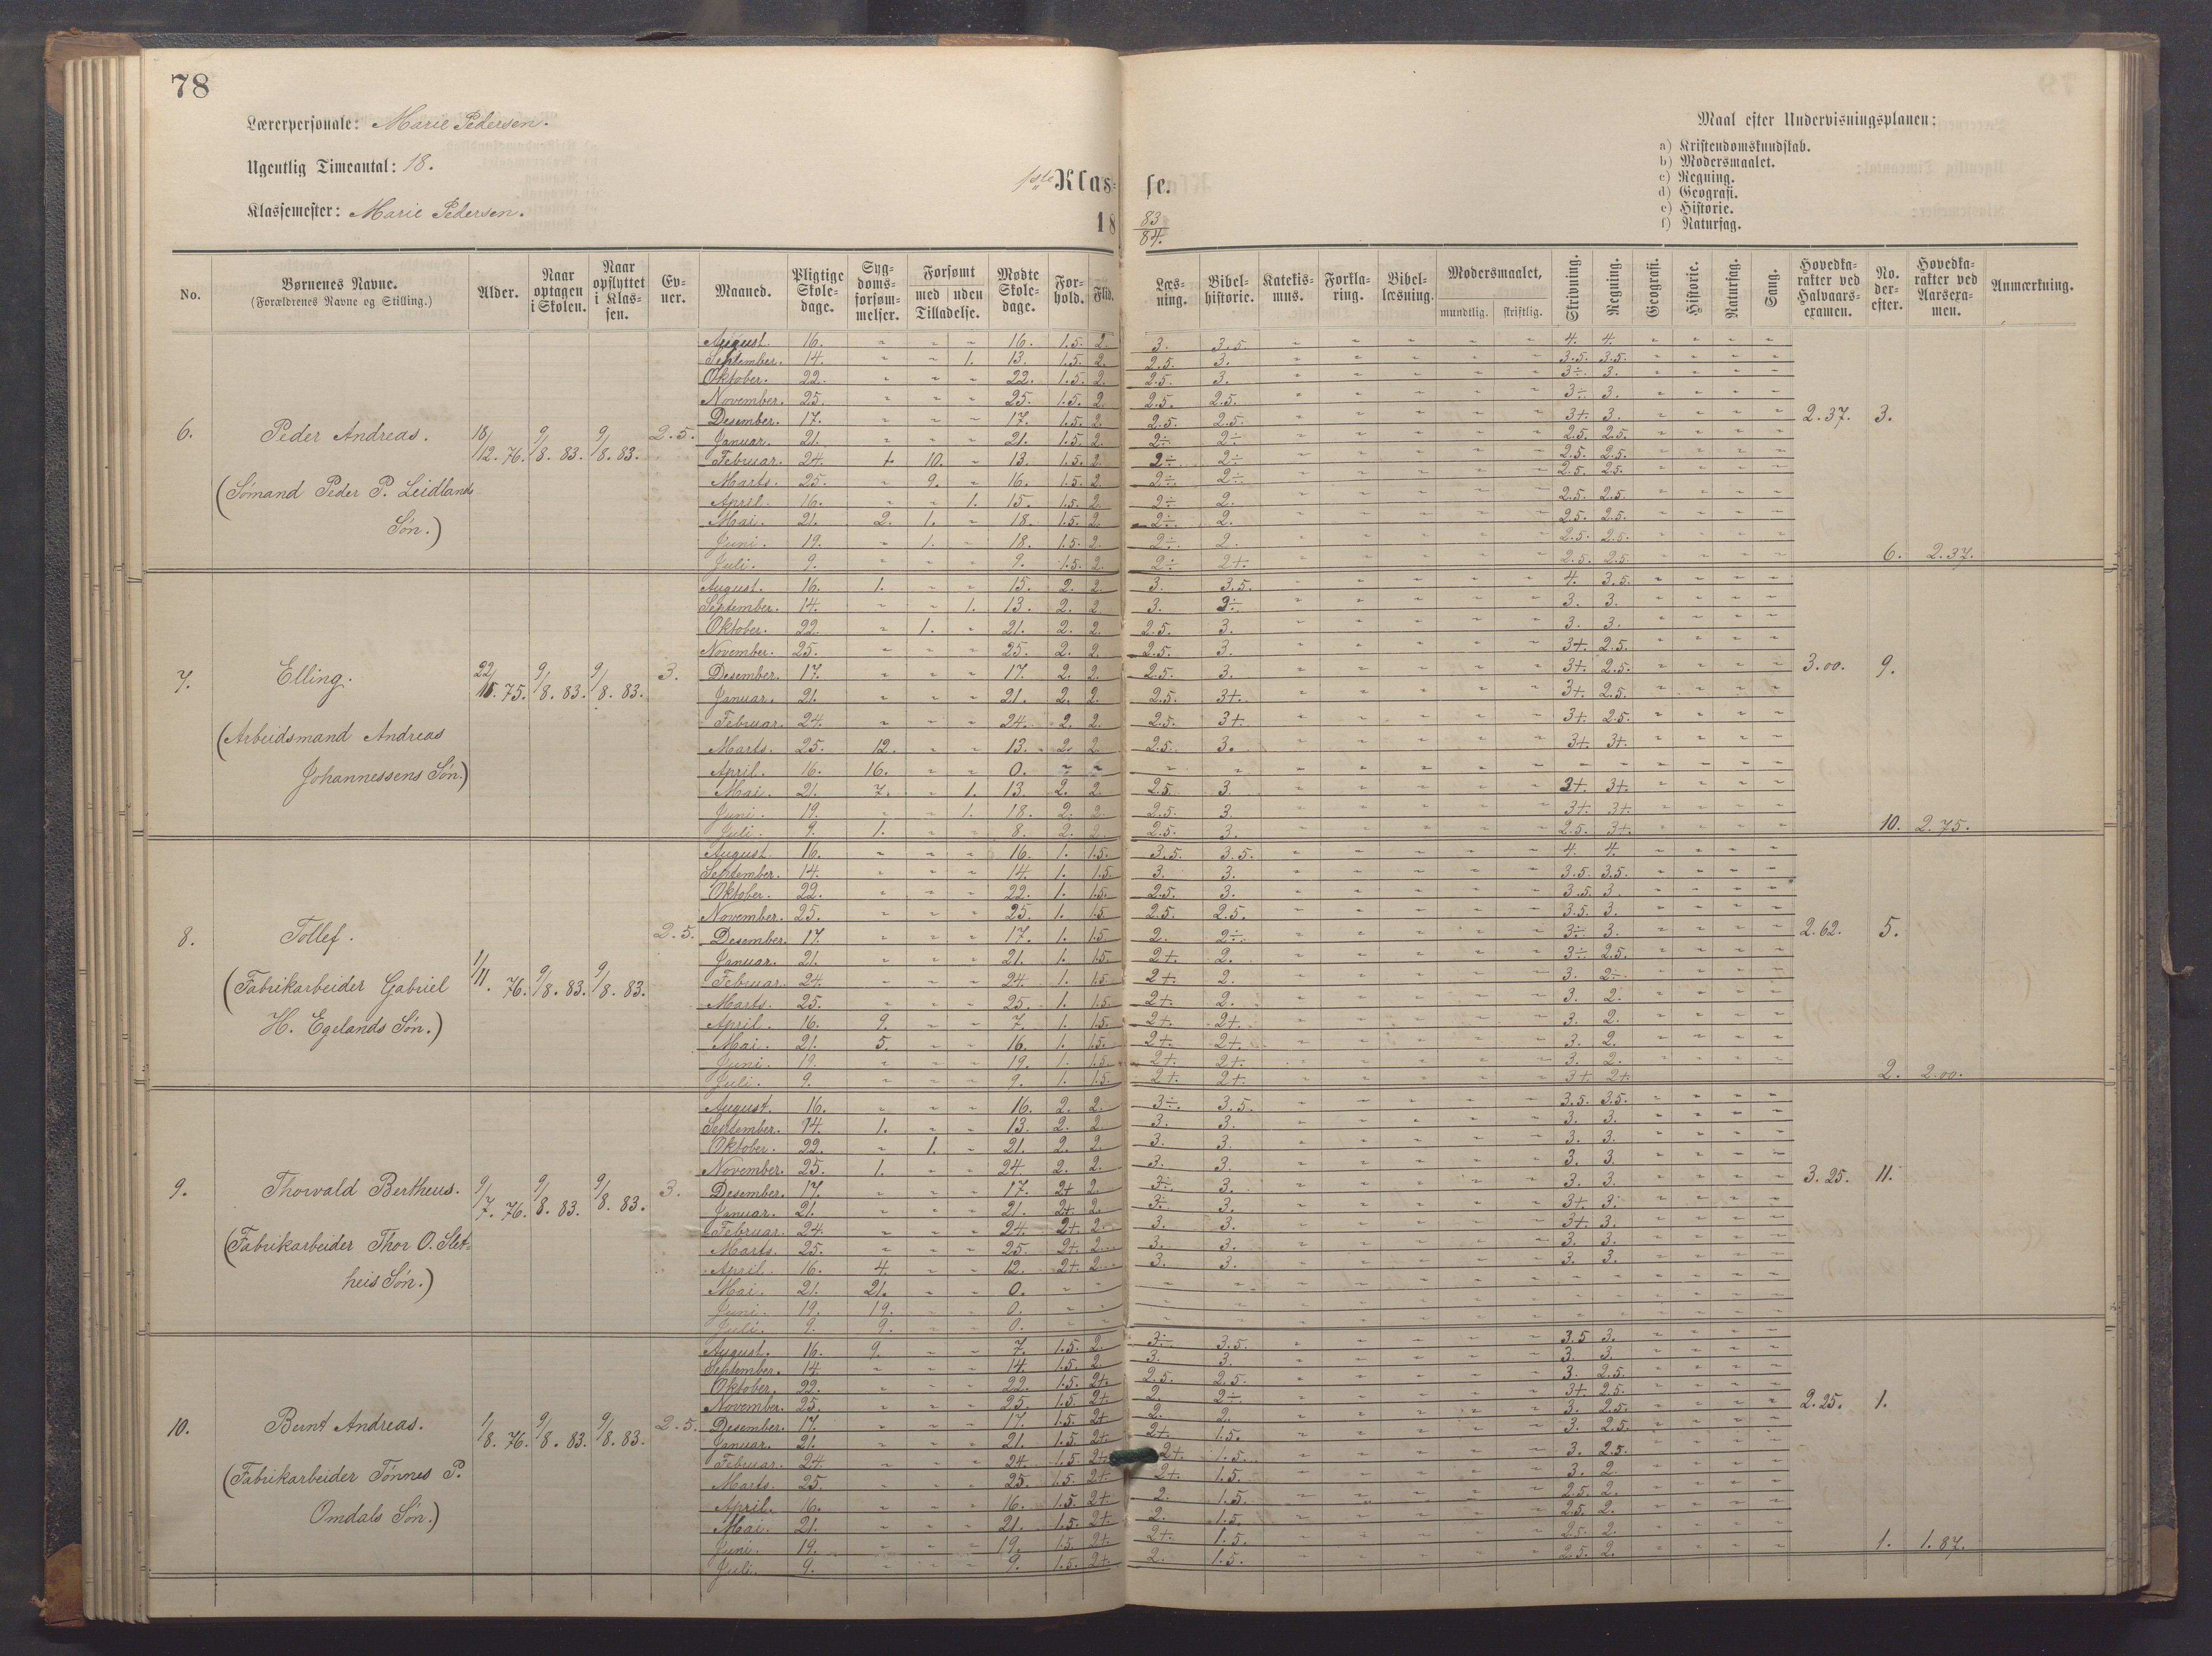 78
Lærerpersonale: Marie Pedersen.
Ugentlig Timeantal: 18.
Klassemester: Marie Pedersen.
1ste Klasse.
18 83/84.
Maal efter Undervisningsplanen:
a) Kristendomskundskab.
b) Modersmaalet.
c) Regning.
d) Geografi.
e) Historie.
f) Naturfag.
No. Børnenes Navne. (Forældrenes Navne og Stilling.) Alder. Naar optagen i Skolen. Naar opflyttet i Klassen. Evner. Maaned. Pligtige Skoledage. Sygdomsforsømmelser. Forsømt med uden Tilladelse. Mødte Skoledage. Forhold. Flid. Læsning. Bibelhistorie. Katekismus. Forklaring. Bibellæsning. Modersmaalet, mundtlig. skriftlig. Skrivning. Regning. Geografi. Historie. Naturfag. Sang. Hovedkarakter ved Halvaarsexamen. No. derefter. Hovedkarakter ved Aarsexamen. Anmærkning.
August. 16. " " " 16. 1.5. 2. 3. 3.5. " " " " " 4. 4. " " " "
September. 14. " " 1. 13. 1.5. 2. 2.5. 3. " " " " " 3.5. 3.5. " " " "
Oktober. 22. " " " 22. 1.5. 2. 2.5. 3. " " " " " 3÷. 3. " " " "
November. 25. " " " 25. 1.5. 2. 2.5. 2.5. " " " " " 3÷. 3. " " " "
Desember. 17. " " " 17. 1.5. 2. 2.5. 2.5. " " " " " 3+. 3. " " " " 2.37. 3.
6. Peder Andreas. 18/12. 76. 9/8. 83. 9/8. 83. 2.5.
Januar. 21. " " " 21. 1.5. 2. 2÷. 2÷. " " " " " 2.5. 2.5. " " " "
Februar. 24. 1. 10. " 13. 1.5. 2. 2÷. 2÷. " " " " " 2.5. 2.5. " " " "
Marts. 25. " 9. " 16. 1.5. 2. 2÷. 2÷. " " " " " 2.5. 2.5. " " " "
(Sömand Peder P. Leidlands
April. 16. " " 1. 15. 1.5. 2. 2÷. 2. " " " " " 2.5. 2.5. " " " "
Mai. 21. 2. 1. " 18. 1.5. 2. 2÷. 2. " " " " " 2.5. 2.5. " " " "
Sön.)
Juni. 19. " 1. " 18. 1.5. 2. 2÷. 2. " " " " " 2.5. 2.5. " " " "
Juli. 9. " " " 9. 1.5. 2. 2÷. 2+. " " " " " 2.5. 2.5. " " " " 6. 2.37.
August. 16. 1. " " 15. 2. 2. 3. 3.5. " " " " " 4. 3.5. " " " "
September. 14. " " 1. 13. 2. 2. 3. 3÷. " " " " " 3. 3. " " " "
Oktober. 22. " 1. " 21. 2. 2. 2.5. 3. " " " " " 3. 3. " " " "
November. 25. " " " 25. 2. 2. 2.5. 3. " " " " " 3+. 2.5. " " " "
7. Elling. 22/ 75. 9/8. 83. 9/8. 83. 3.
Desember. 17. " " " 17. 2. 2. 2.5. 3. " " " " " 3+. 2.5. " " " " 3.00. 9.
Januar. 21. " " " 21. 2. 2. 2.5. 3+. " " " " " 3+. 2.5. " " " "
Februar. 24. " " " 24. 2. 2. 2.5. 3+. " " " " " 3+. 2.5. " " " "
(Arbeidsmand Andreas
Marts. 25. 12. " " 13. 2. 2. 2.5. 3. " " " " " 3+. 3+. " " " "
Johannessens Sön.)
April. 16. 16. " " 0. " " " " " " " " " " " " " " "
Mai. 21. 7. " 1. 13. 2. 2. 2.5. 3. " " " " " 3+. 3+. " " " "
Juni. 19. " " 1. 18. 2. 2. 2.5. 3. " " " " " 3+. 3+. " " " "
Juli. 9. 1. " " 8. 2. 2. 2.5. 3. " " " " " 2.5. 3+. " " " " 10. 2.75.
August. 16. " " " 16. 1. 1.5. 3.5. 3.5. " " " " " 4. 4. " " " "
September. 14. " " " 14. 1. 1.5. 3. 3. " " " " " 3.5. 3.5. " " " "
Oktober. 22. " " " 22. 1. 1.5. 2.5. 3. " " " " " 3.5. 3. " " " "
November. 25. " " " 25. 1. 1.5. 2.5. 2.5. " " " " " 3.5. 3. " " " "
8. Tollef. 1/11. 76. 9/8. 83. 9/8. 83. 2.5.
Desember. 17. " " " 17. 1. 1.5. 2. 2÷. " " " " " 3÷. 3. " " " " 2.62. 5.
Januar. 21. " " " 21. 1. 1.5. 2+. 2. " " " " " 3÷. 2.5. " " " "
(Fabrikarbeider Gabriel
Februar. 24. " " " 24. 1. 1.5. 2+. 2. " " " " " 3. 2÷. " " " "
Marts. 25. " " " 25. 1. 1.5. 2+. 2. " " " " " 3. 2. " " " "
H. Egelands Sön.)
April. 16. 9. " " 7. 1. 1.5. 2+. 2+. " " " " " 3. 2. " " " "
Mai. 21. 5. " " 16. 1. 1.5. 2+. 2+. " " " " " 3. 2. " " " "
Juni. 19. " " " 19. 1. 1.5. 2+. 2+. " " " " " 3. 2. " " " "
Juli. 9. " " " 9. 1. 1.5. 2+. 2+. " " " " " 3+. 2+. " " " " 2. 2.00.
August. 16. " " " 16. 2. 2. 3÷. 3.5. " " " " " 3.5. 3.5. " " " "
September. 14. 1. " " 13. 2. 2. 3. 3. " " " " " 3. 3. " " " "
Oktober. 22. " 1. " 21. 2. 2. 3. 3. " " " " " 3. 3. " " " "
November. 25. 1. " " 24. 2. 2. 3. 3. " " " " " 3. 3. " " " "
9. Thorvald Bertheus. 9/7. 76. 9/8. 83. 9/8. 83. 3.
Desember. 17. " " " 17. 2+ 2. 3÷. 3. " " " " " 3. 3. " " " " 3.25. 11.
Januar. 21. " " " 21. 2+ 2. 3÷. 3. " " " " " 3+. 3. " " " "
Februar. 24. " " " 24. 2+. 2. 3. 3. " " " " " 3+. 3. " " " "
(Fabrikarbeider Thor O. Slet-
Marts. 25. " " " 25. 2+. 2. 3. 3. " " " " " 3. 3. " " " "
April. 16. 4. " " 12. 2+. 2. 3. 3. " " " " " 3. 3. " " " "
heis Sön.)
Mai. 21. 21. " " 0. " " " " " " " " " " " " " " "
Juni. 19. 19. " " 0. " " " " " " " " " " " " " " "
Juli. 9. 9. " " 0. " " " " " " " " " " " " " " "
August. 16. 9. " " 7. 1.5. 2. 3÷. 3.5. " " " " " 3.5 3. " " " "
September. 14. " " " 14. 1.5. 2. 3. 3. " " " " " 3. 3. " " " "
Oktober. 22. " " " 22. 1.5. 2+. 2.5. 2.5. " " " " " 3. 2.5. " " " "
November. 25. " " " 25. 1.5. 2+. 2. 2÷. " " " " " 3+. 2.5. " " " "
10. Bernt Andreas. 1/8. 76. 9/8. 83. 9/8. 83. 2.5.
Desember. 17. " " " 17. 1.5. 2+. 2. 2. " " " " " 3. 2.5. " " " " 2.25. 1.
Januar. 21. " " " 21. 1.5. 2+. 2+. 1.5. " " " " " 3. 2.5. " " " "
Februar. 24. " " " 24. 1.5. 2+. 2+. 1.5. " " " " " 3. 2.5. " " " "
(Fabrikarbeider Tönnes P.
Marts. 25. " " " 25. 1.5. 2+. 2+. 1.5. " " " " " 3. 2. " " " "
April. 16. " " " 16. 1.5. 2+. 2. 1.5. " " " " " 2.5. 2. " " " "
Omdals Sön.)
Mai. 21. " " " 21. 1.5. 2+. 2. 1.5. " " " " " 2.5. 2. " " " "
Juni. 19. " " " 19. 1.5. 2+. 2+. 1.5. " " " " " 2.5. 2. " " " "
Juli. 9. " " " 9. 1.5. 2+. 2. 1.5. " " " " " 2.5. 2. " " " " 1. 1.87.